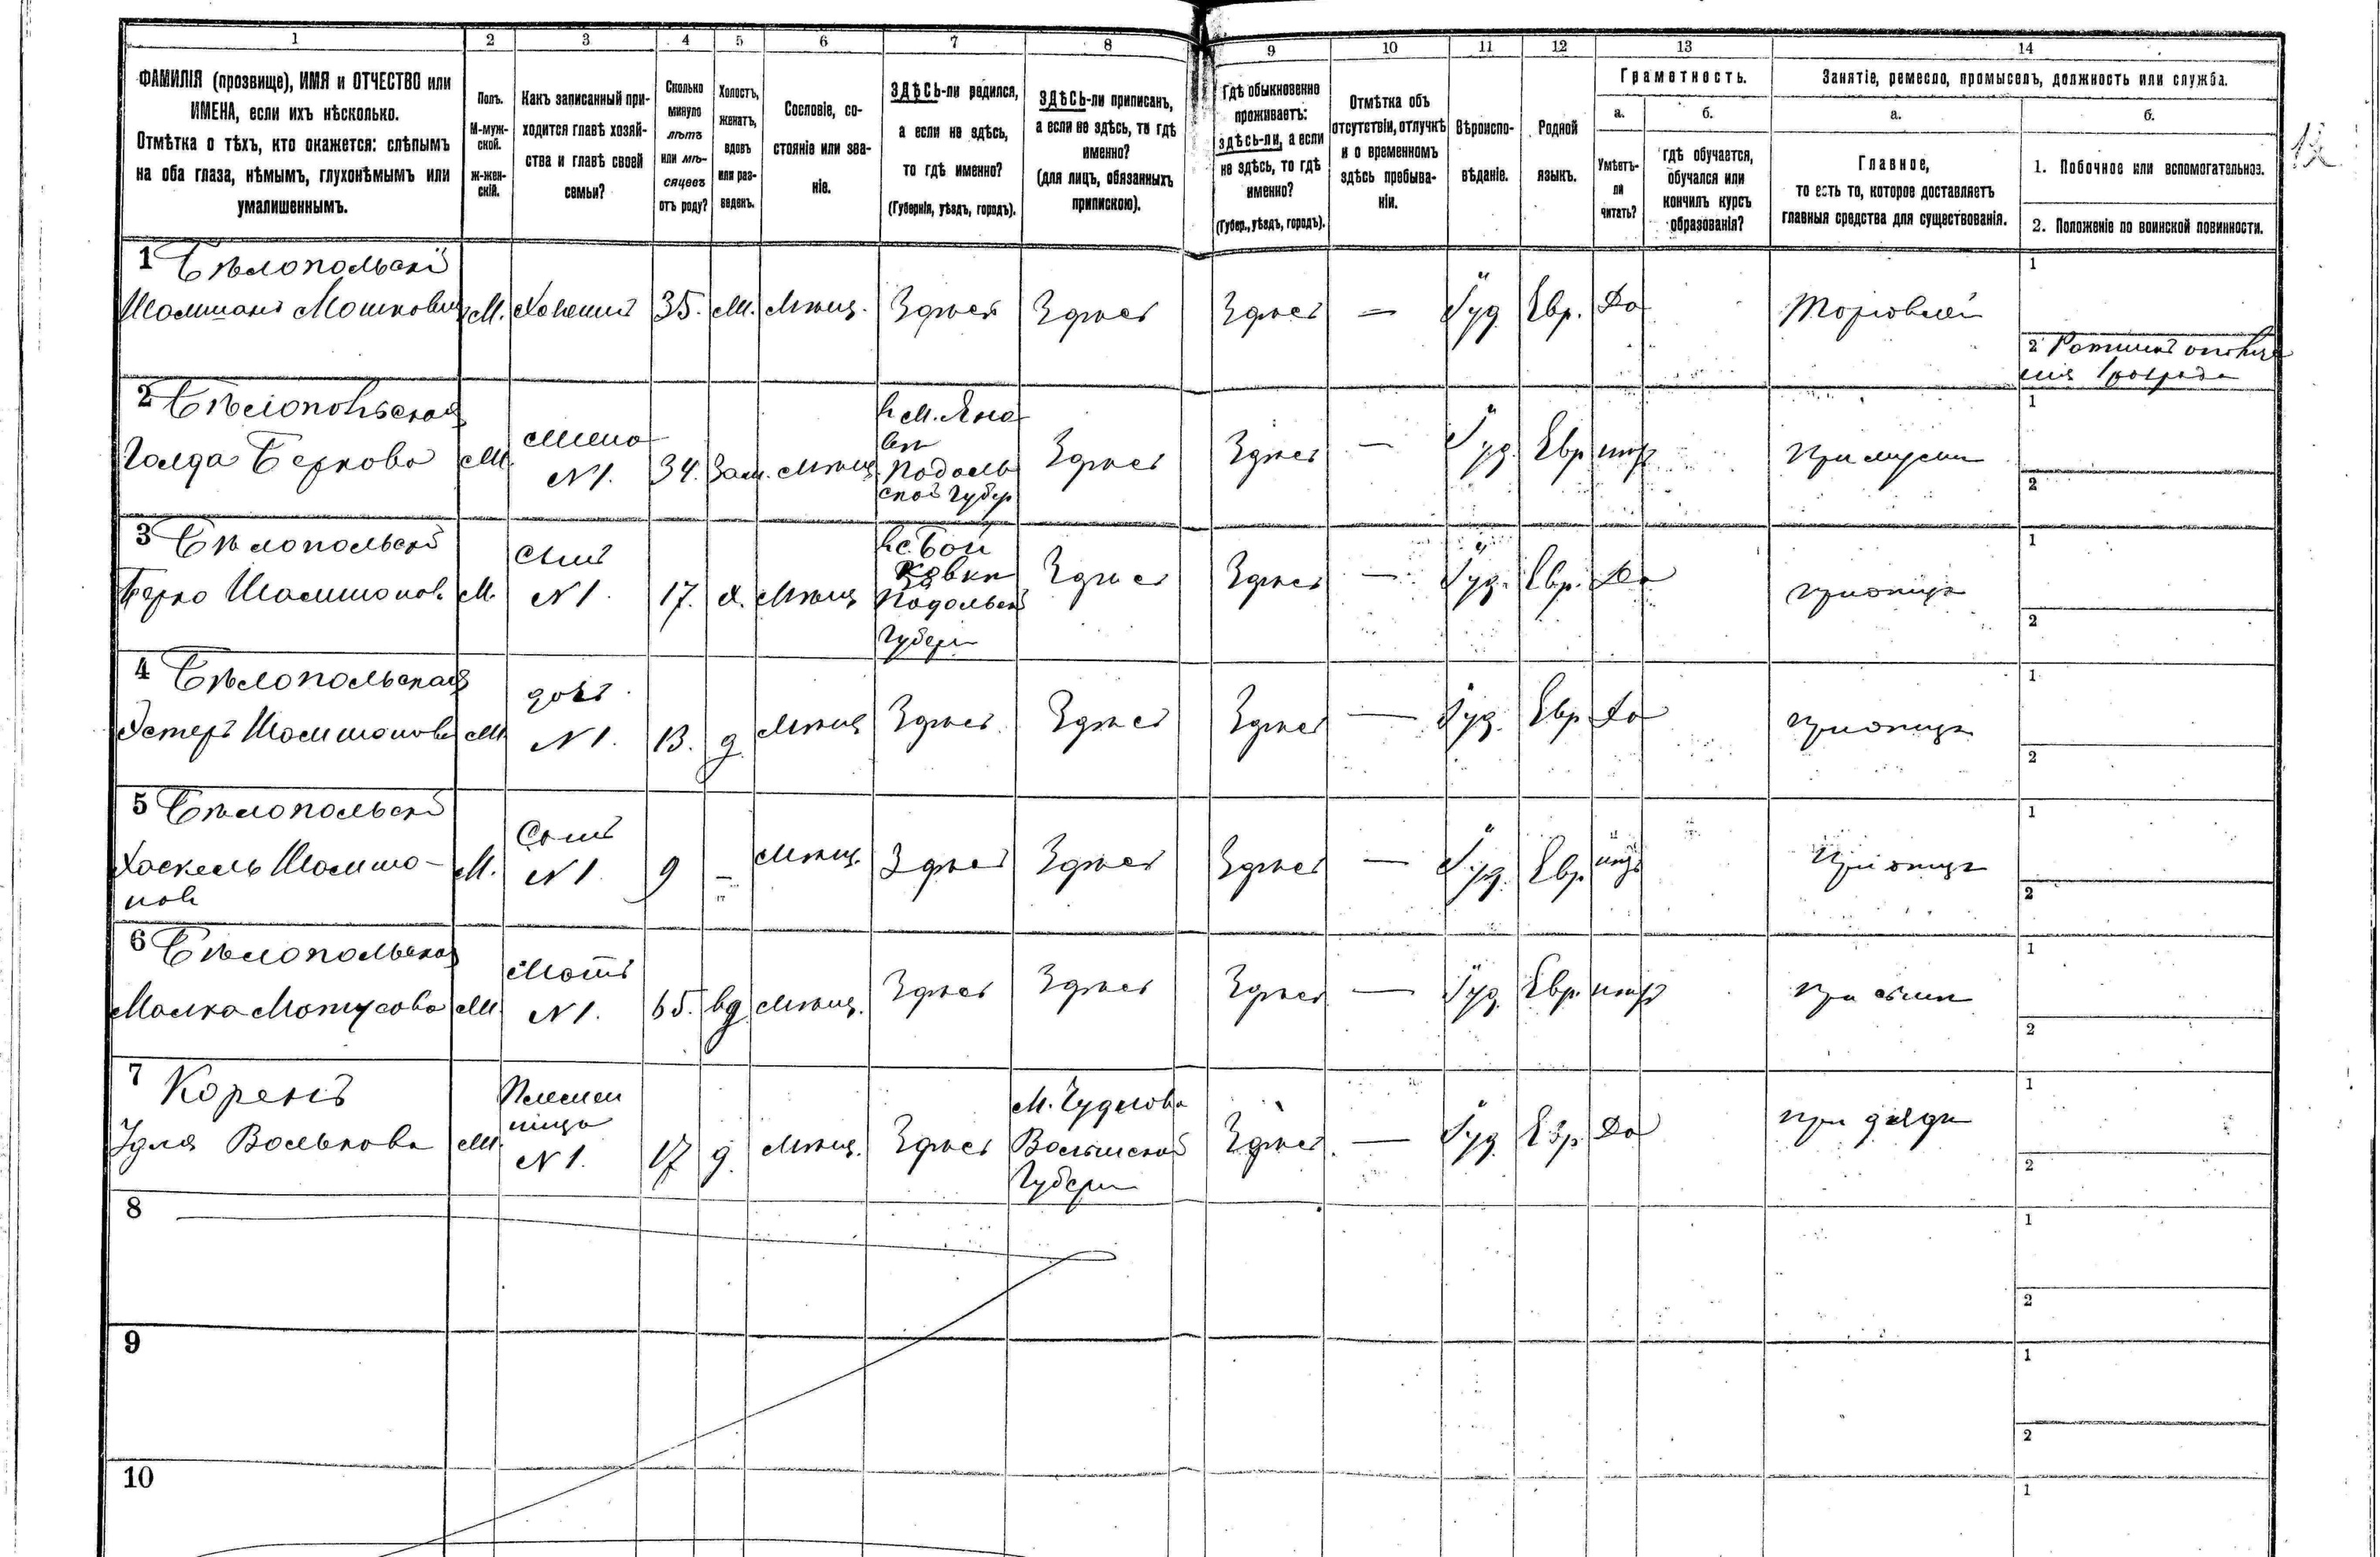 1 2 3 4 5 6 7 8 9 10 11 12 13 14
ФАМИЛІЯ (прозвище), ИМЯ и ОТЧЕСТВО или
ИМЕНА, если ихъ нѣсколько.
Отмѣтка о тѣхъ, кто окажется: слѣпымъ
на оба глаза, нѣмымъ, глухонѣмымъ или
умалишеннымъ.
Полъ.
М-муж-
ской.
Ж-жен-
скій.
Какъ записанный при-
ходится главѣ хозяй-
ства и главѣ своей
семьи?
Сколько
минуло
лѣтъ
или мѣ-
сяцевъ
отъ роду?
Холостъ,
женатъ,
вдовъ
или раз-
веденъ.
Сословіе, со-
стояніе или зва-
ніе.
ЗДѢСЬ-ли родился,
а если не здѣсь,
то гдѣ именно?
(Губернія, уѣздъ, городъ).
ЗДѢСЬ-ли приписанъ,
а если не здѣсь, то гдѣ
именно?
(для лицъ, обязанныхъ
припискою).
Гдѣ обыкновенно
проживаетъ:
здѣсь-ли, а если
не здѣсь, то гдѣ
именно?
(Губер., уѣздъ, городъ).
Отмѣтка объ
отсутствіи, отлучкѣ
и о временномъ
здѣсь пребыва-
ніи.
Вѣроиспо-
вѣданіе.
Родной
языкъ.
Грамотность.
а.
Умѣетъ-
ли
читать?
б.
гдѣ обучается,
обучался или
кончилъ курсъ
образованія?
Занятіе, ремесло, промыселъ, должность или служба.
а.
Главное,
то есть то, которое доставляетъ
главныя средства для существованія.
б.
1. Побочное или вспомогательное.
2. Положеніе по воинской повинности.
12
1 Бѣлопольскій
Шамшонъ Мошковичъ М. Хозяинъ 35. Ж. Мѣщ. Здѣсь Здѣсь Здѣсь — Іуд Евр. Да Торговлей
1
2 Ратникъ ополче
нія 1 розряда
2 Бѣлопольская
Голда Беркова Ж. Жена
N1. 34. Зам. Мѣщ
в м. Яно
вѣ
Подоль
ской Губер
Здѣсь Здѣсь — Іуд. Евр нѣтъ При мужѣ
1
2
3 Бѣлопольскій
Берко Шамшонов. М. Сынъ
N1. 17. Х. Мѣщ
Подольской
Губерн
Здѣсь Здѣсь — Іуд. Евр. Да при отцѣ
1
2
4 Бѣлопольская
Эстеръ Шамшонова Ж дочь
N1. 13. д. Мѣщ Здѣсь Здѣсь Здѣсь — Іуд. Евр Да при отцѣ
1
2
5 Бѣлопольскій
Хаскель Шамшо-
нов
М. Сынъ
N1 9 — Мѣщ. Здѣсь Здѣсь Здѣсь — Іуд. Евр нѣтъ При отцѣ
1
2
6 Бѣлопольская
Малка Мотусова Ж. Мать
N1. 65. вд Мѣщ. Здѣсь Здѣсь Здѣсь — Іуд. Евр. нѣтъ при сынѣ
1
2
7 Корень
Удля Волькова Ж. Племян
ница
N1. 17 д. Мѣщ. Здѣсь
м. Чуднова
Волынской
Губерн
Здѣсь. — Іуд. Евр. Да при дядѣ
1
2
8
1
2
9
1
2
10
1